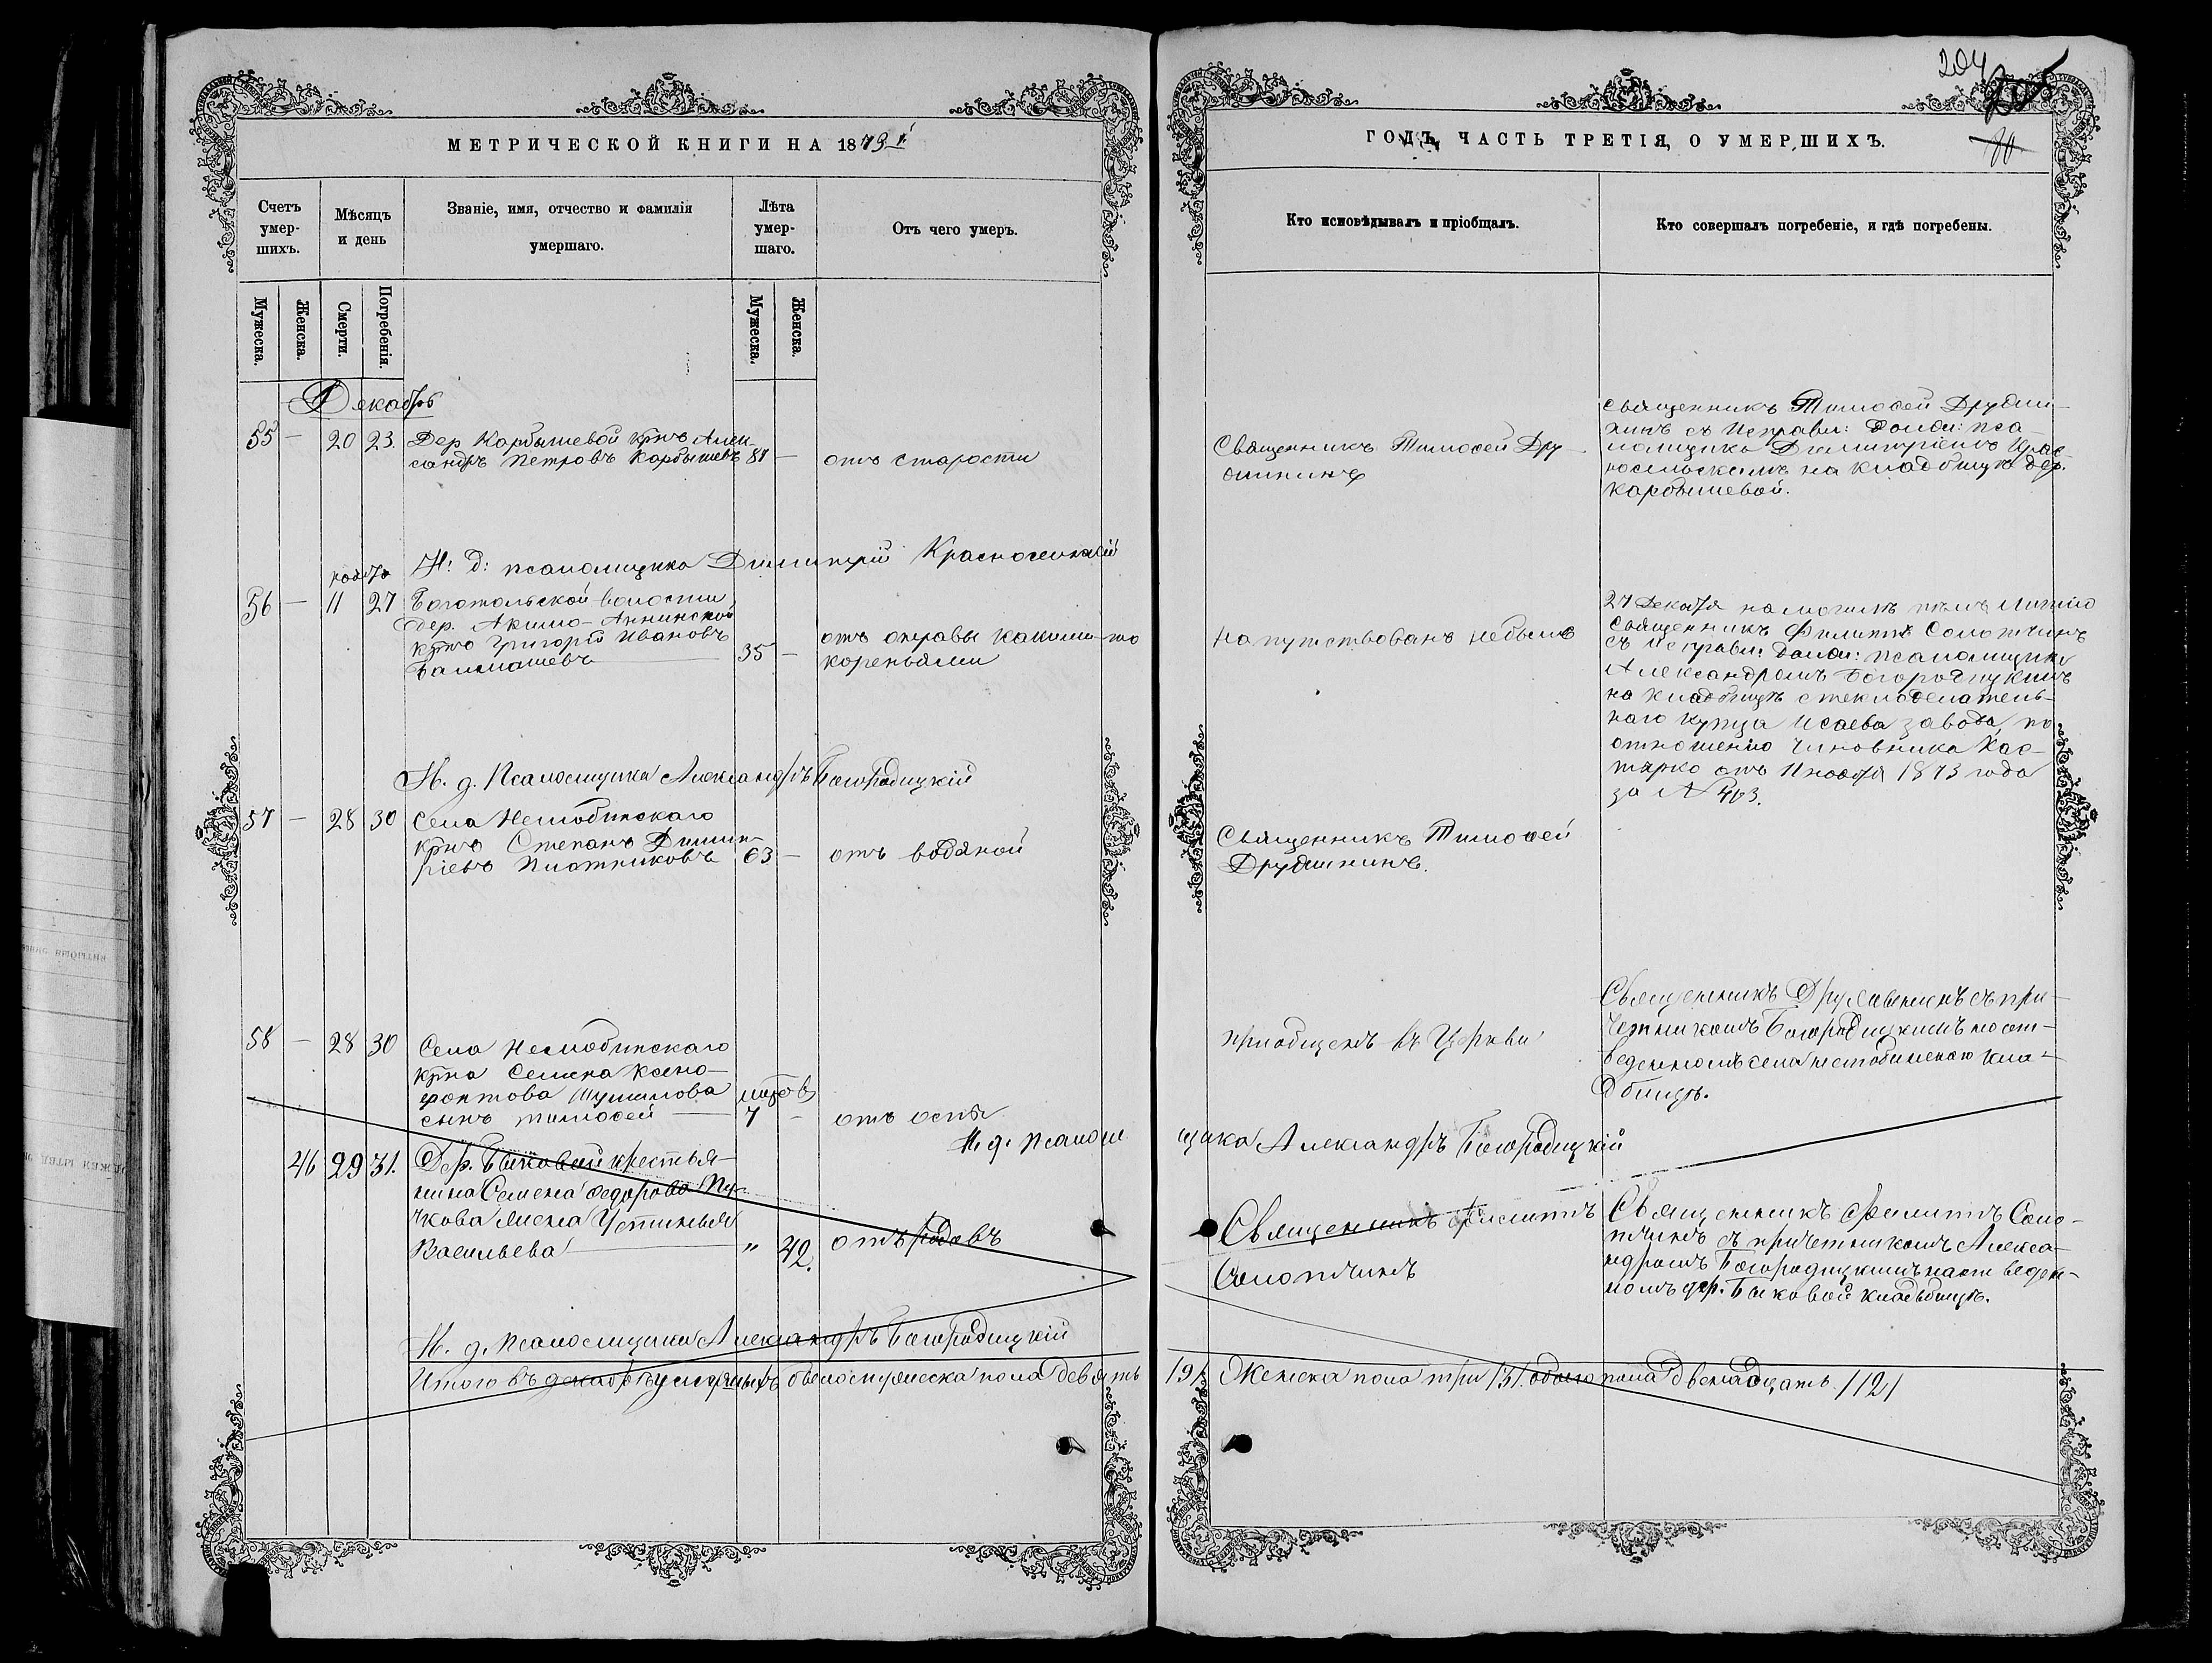 204
205
80
МЕТРИЧЕСКОЙ КНИГИ НА 1873 й
ГОДЪ, ЧАСТЬ ТРЕТІЯ, О УМЕРШИХЪ.
Счетъ умер-шихъ.
Мѣсяцъ и день
Званіе, имя, отчество и фамилія
умершаго.
Лѣта умер-шаго.
Отъ чего умеръ.
Кто исповѣдывалъ и пріобщалъ.
Кто совершалъ погребеніе, и гдѣ погребены.
Мужеска.
Женска.
Смерти.
Погребенія.
Мужеска.
Женска.
Декабрь
55 — 20 23.
Дер Карбышевой крнъ Алек
сандръ Петровъ Карбышевъ 87 —
отъ старости
Священникъ Тимоѳей Дру
жининъ
Священникъ Тимоѳей Дружи-
нинъ съ Исправл: Должн: пса-
ломщика Димитріемъ Крас-
носельскимъ на кладбищѣ дер.
Карбышевой.
И: д: псаломщика Димитрій Красносельскій
ноября
56 — 11 27
Боготольской волости
дер. Акимо-Аннинской
крнъ Григорій Ивановъ
Балмашевъ
35 —
отъ отравы какими-то
кореньями
напутствованъ небылъ
27 Декабря на могилѣ пѣлъ литію
Священникъ Филиппъ Солотчинъ
съ Исправл: Должн: псаломщика
Александромъ Богородицкимъ
на кладбищѣ стеклодѣлатель-
наго купца Исаева завода, по
отношенію чиновника Кос-
тырко отъ ноября 1873 года
за № 403.
И. д. Псаломщика Александръ Богородицкій
57 — 28 30
Села Немобинскаго
крнъ Степанъ Димит-
ріевъ Плотниковъ 63 —
отъ водяной
Священникъ Тимоѳей
Дружининъ.
58 — 28 30
Села Немобинскаго
крна Семена Ксено-
фонтова Шумилова
сынъ Тимоѳей
7 —
отъ оспы
пріобщенъ въ Церкви
Священникъ Дружининъ съ при-
четникомъ Богородицкимъ по от-
веденномъ села Немобинскаго кла-
дбищѣ.
И. д. Псаломщика Александръ Богородицкій
46 29 31.
Дер. Быковой крестья-
нина Семена Федорова Пу-
чкова жена Устинья
Васильева
„ 42.
отъ родовъ
Священникъ Филиппъ
Солотчинъ
Священникъ Филиппъ Соло-
тчинъ съ причетникомъ Алекса-
ндромъ Богородицкимъ на отведен-
номъ дер. Быковой кладбищѣ.
И. д. Псаломщика Александръ Богородицкій
Итого въ декабрѣ умершихъ было мужеска пола девять /9/ Женска пола три /3/. обоего пола двенадцать. /12/